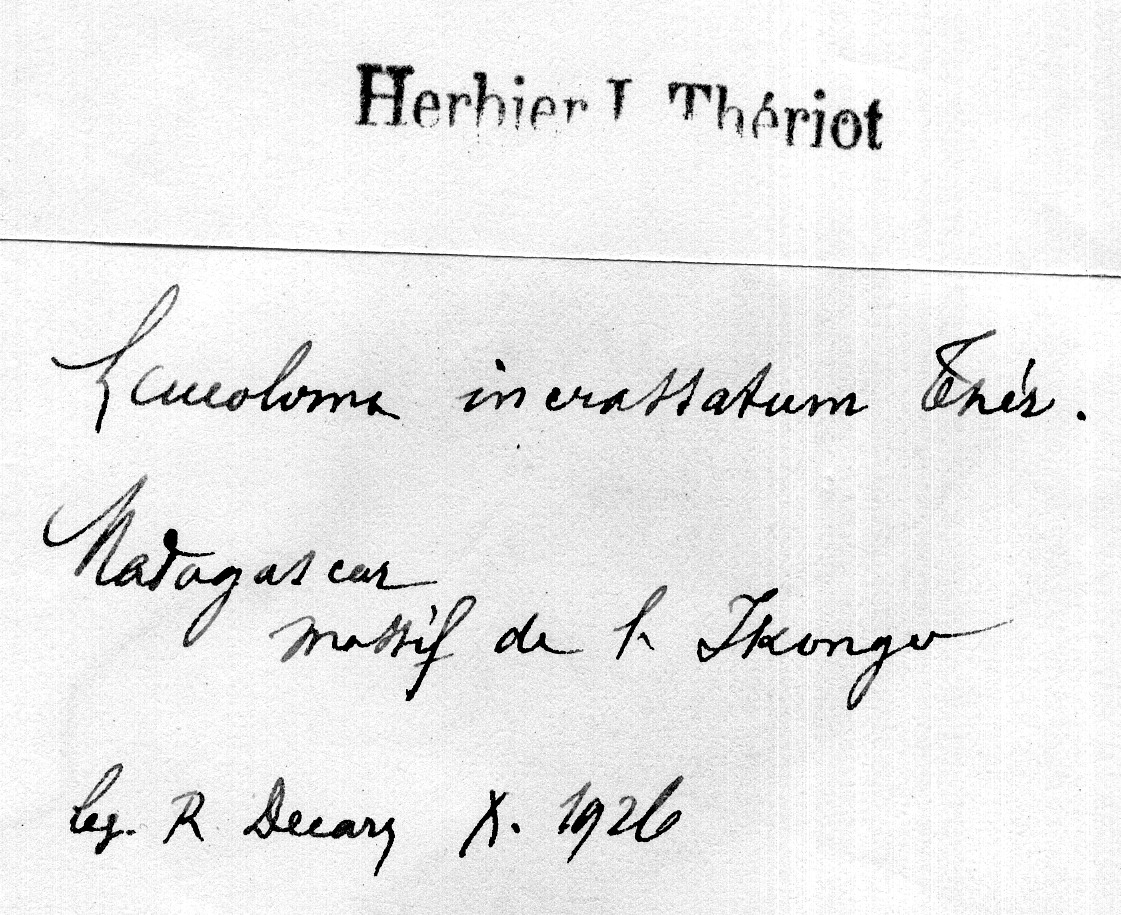 Herbier I. Thériot
Leucoloma incrassatum Thér.
Madagascar
massif de l' Ikongo
leg. R Decary X. 1926